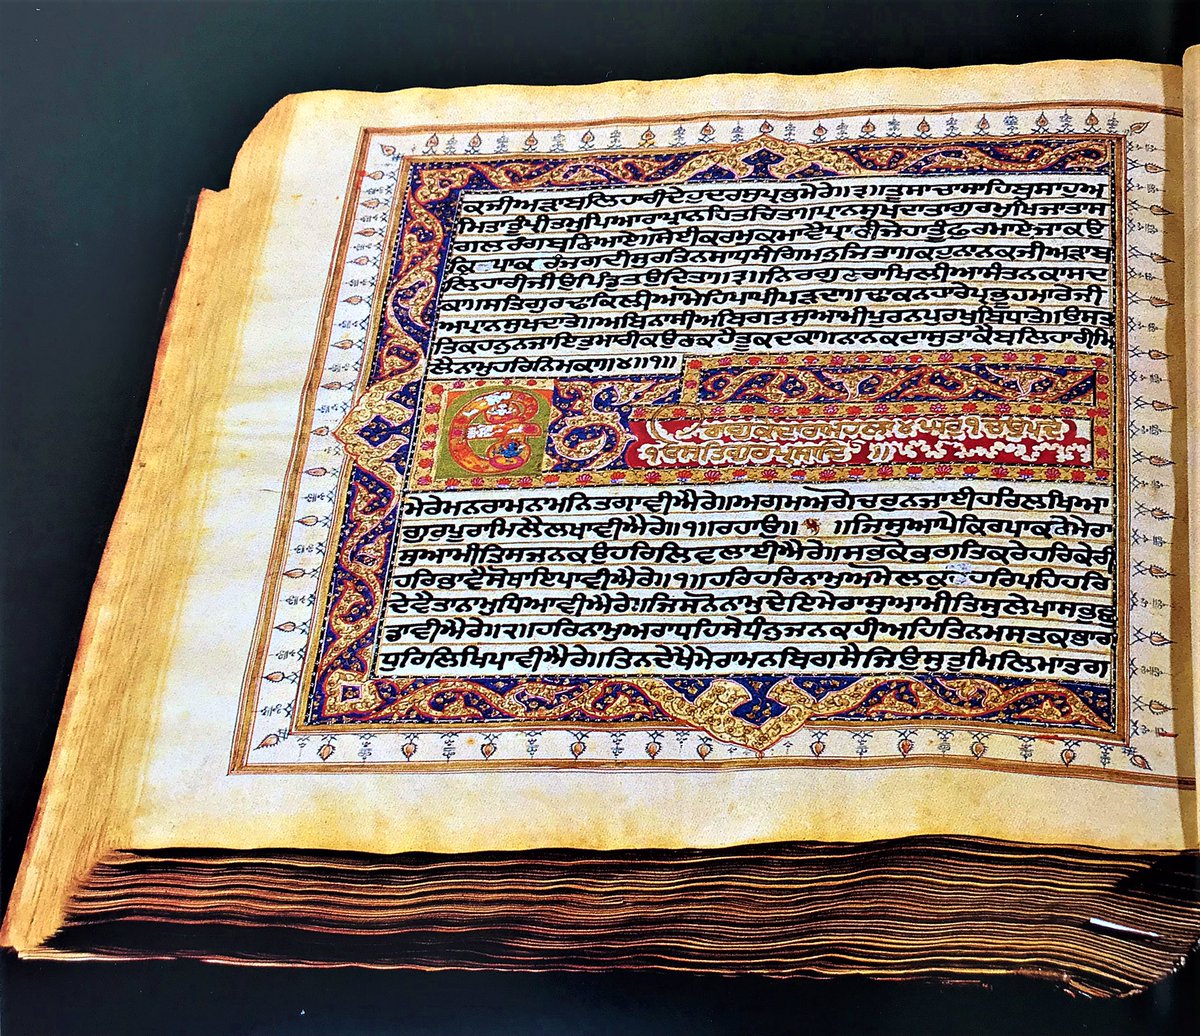 ਕ ਜੀਅੜਾ ਬਲਿਹਾਰੀ ਦੇਹੁ ਦਰਸੁ ਪ੍ਰਭ ਮੇਰੇ ॥੨॥ ਤੂ ਸਾਚਾ ਸਾਹਿਬੁ ਸਾਹੁ ਅ
ਮਿਤਾ ਤੂੰ ਪ੍ਰੀਤਮੁ ਪਿਆਰਾ ਪ੍ਰਾਨ ਹਿਤ ਚਿਤਾ ॥ ਪ੍ਰਾਨ ਸੁਖਦਾਤਾ ਗੁਰਮੁਖਿ ਜਾਤਾ ਸ
ਗਲ ਰੰਗ ਬਨਿ ਆਏ ॥ ਸੋਈ ਕਰਮੁ ਕਮਾਵੈ ਪ੍ਰਾਣੀ ਜੇਹਾ ਤੂੰ ਫੁਰਮਾਏ ਜਾ ਕਉ
ਜਗਦੀਸੁਰ ਤਿਨਿ ਸਾਧਸੰਗਿ ਮਨੁ ਜਿਤਾ ॥ ਕਹੁ ਨਾਨਕ ਜੀਅੜਾ ਬ
ਲਿਹਾਰੀ ਜੀਉ ਪਿੰਡੁ ਤਉ ਦਿਤਾ ॥੩॥ ਨਿਰਗੁਣੁ ਰਾਖਿ ਲੀਆ ਸੰਤਨ ਕਾ ਸਦ
ਕਾ ॥ ਸਤਿਗੁਰਿ ਢਾਕਿ ਲੀਆ ਮੋਹਿ ਪਾਪੀ ਪੜਦਾ ॥ ਢਾਕਨਹਾਰੇ ਪ੍ਰਭੂ ਹਮਾਰੇ ਜੀ
ਅ ਪ੍ਰਾਨ ਸੁਖਦਾਤੇ ॥ ਅਬਿਨਾਸੀ ਅਬਿਗਤ ਸੁਆਮੀ ਪੂਰਨ ਪੁਰਖ ਬਿਧਾਤੇ ॥ ਉਸਤ
ਤਿ ਕਹਨੁ ਨ ਜਾਇ ਤੁਮਾਰੀ ਕਉਣੁ ਕਹੈ ਤੂ ਕਦ ਕਾ ॥ ਨਾਨਕ ਦਾਸੁ ਤਾ ਕੈ ਬਲਿਹਾਰੀ ਮਿ
ਲੈ ਨਾਮੁ ਹਰਿ ਨਿਮਕਾ ॥੪॥੧॥
ੴ ਰਾਗੁ ਕੇਦਾਰਾ ਮਹਲਾ ੪ ਘਰੁ ੧ ਚਉਪਦੇ
੧ਓ ਸਤਿਗੁਰ ਪ੍ਰਸਾਦਿ ॥
ਮੇਰੇ ਮਨ ਰਾਮ ਨਾਮ ਨਿਤ ਗਾਵੀਐ ਰੇ ॥ ਅਗਮ ਅਗੋਚਰੁ ਨ ਜਾਈ ਹਰਿ ਲਖਿਆ
ਗੁਰੁ ਪੂਰਾ ਮਿਲੈ ਲਖਾਵੀਐ ਰੇ ॥੧॥ ਰਹਾਉ ॥ ॥ ਜਿਸੁ ਆਪੇ ਕਿਰਪਾ ਕਰੇ ਮੇਰਾ
ਸੁਆਮੀ ਤਿਸੁ ਜਨ ਕਉ ਹਰਿ ਲਿਵ ਲਾਈਐ ਰੇ ॥ ਸਭੁ ਕੋ ਭਗਤਿ ਕਰੇ ਹਰਿ ਕੇਰੀ
ਹਰਿ ਭਾਵੈ ਸੋ ਥਾਇ ਪਾਵੀਐ ਰੇ ॥੧॥ ਹਰਿ ਹਰਿ ਨਾਮੁ ਅਮੋਲਕੁ ਹਰਿ ਪਹਿ ਹਰਿ
ਦੇਵੈ ਤਾ ਨਾਮੁ ਧਿਆਵੀਐ ਰੇ ॥ ਜਿਸ ਨੋ ਨਾਮੁ ਦੇਇ ਮੇਰਾ ਸੁਆਮੀ ਤਿਸੁ ਲੇਖਾ ਸਭੁ ਛ
ਡਾਵੀਐ ਰੇ ॥੨॥ ਹਰਿ ਨਾਮੁ ਅਰਾਧਹਿ ਸੇ ਧੰਨੁ ਜਨ ਕਹੀਅਹਿ ਤਿਨ ਮਸਤਕਿ ਭਾਗੁ
ਧੁਰਿ ਲਿਖਿ ਪਾਵੀਐ ਰੇ ॥ ਤਿਨ ਦੇਖੇ ਮੇਰਾ ਮਨੁ ਬਿਗਸੈ ਜਿਉ ਸੁਤੁ ਮਿਲਿ ਮਾਤ ਗ